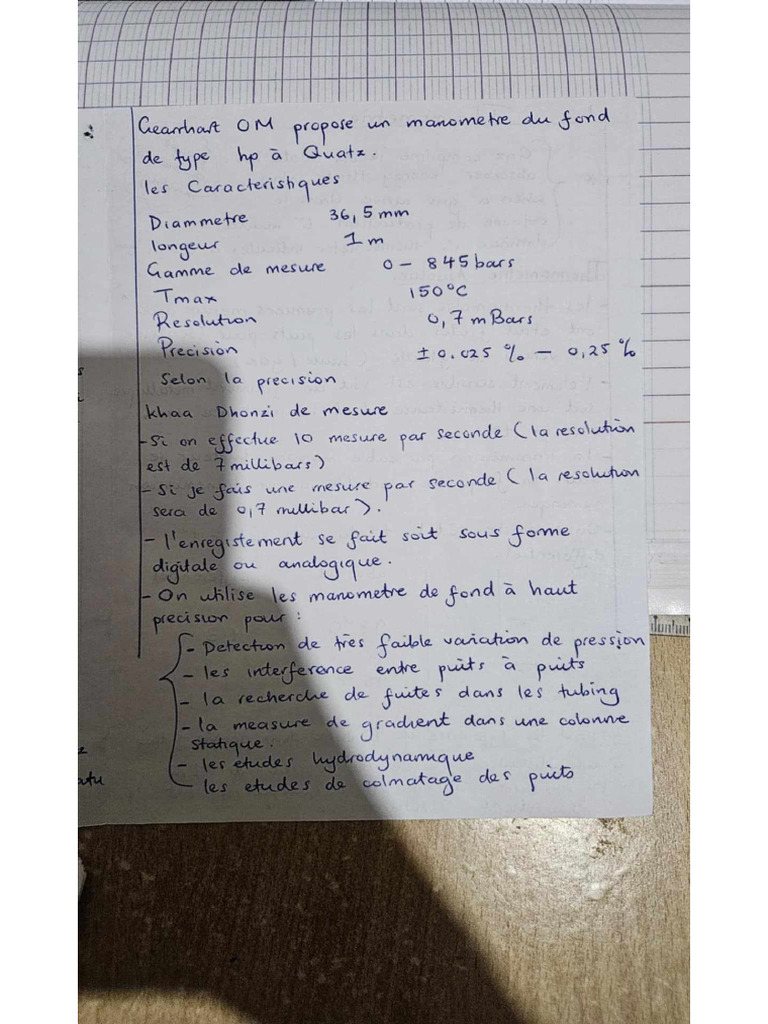 Gearrhart OM propose un manometre du fond
de type hp à Quatz.
les Caracteristiques
Diammetre 36,5mm
longeur 1 m
Gamme de mesure 0 - 845 bars
Tmax 150°C
Resolution 0,7 mBars
Precision ± 0.025 % - 0,25 %
Selon la precision
khaa Dhonzi de mesure
- Si on effectue 10 mesure par seconde (la resolution
est de 7 millibars)
- Si je fais une mesure par seconde ( la resolution
sera de 0,7 millibar).
- l'enregistement se fait soit sous forme
digitale ou analogique.
- On utilise les manometre de fond à haut
precision pour :
- Detection de très faible variation de pression
- les interference entre puits à puits
- la recherche de fuites dans les tubing
- la measure de gradient dans une colonne
statique.
- les etudes hydrodynamique
- les etudes de colmatage des puits